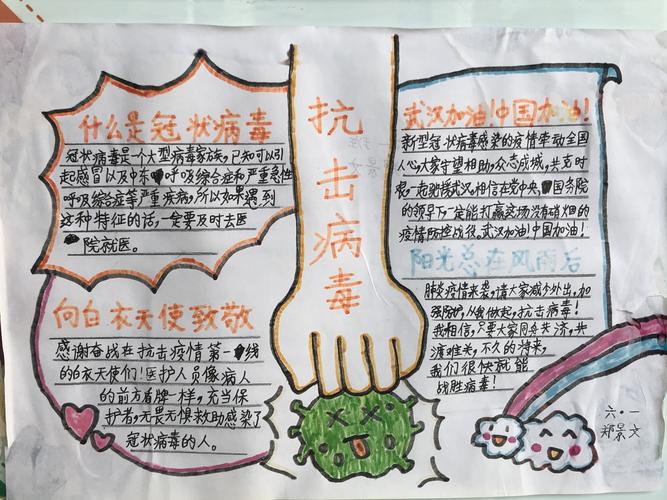 什么是冠状病毒
冠状病毒是一个大型病毒家族,已知可以引
起感冒以及中东呼吸综合征和严重急性
呼吸综合征等严重疾病,所以如果遇到
这种特征的话,一定要及时去医
院就医。
向白衣天使致敬
感谢奋战在抗击疫情第一线
的白衣天使们!医护人员像病人
的前方盾牌一样,充当保
护者,无畏无惧救助感染了
冠状病毒的人。
抗击病毒
武汉加油!中国加油!
新型冠状病毒感染的疫情牵动全国
人心,大家守望相助,众志成城,共克时
艰,一起驰援武汉,相信在党中央,国务院
的领导下,一定能打赢这场没有硝烟的
疫情防控战役。武汉加油!中国加油!
阳光总在风雨后
肺炎疫情来袭,请大家减少外出,加
强防护,从我做起,抗击病毒!
我相信,只要大家同舟共济,共
渡难关,不久的将来,
我们很快就能
战胜病毒!
六·一
郑景文